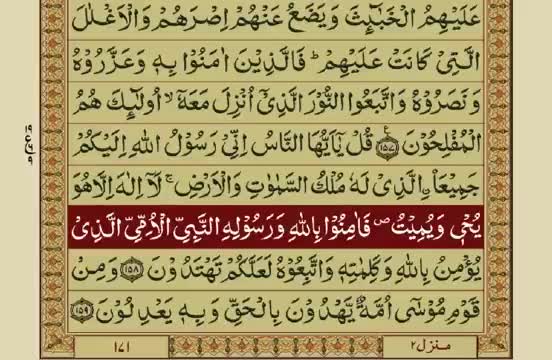 عَلَيْهِمُ الْخَبٰٓئِثَ وَيَضَعُ عَنْهُمْ اِصْرَهُمْ وَالْاَغْلٰلَ
الَّتِيْ كَانَتْ عَلَيْهِمْ ؕ فَالَّذِيْنَ اٰمَنُوْا بِهٖ وَعَزَّرُوْهُ
وَنَصَرُوْهُ وَاتَّبَعُوا النُّوْرَ الَّذِيْٓ اُنْزِلَ مَعَهٗٓ ۙ اُولٰٓئِكَ هُمُ
الْمُفْلِحُوْنَ ﴿۱۵۷﴾ ع قُلْ يٰٓاَيُّهَا النَّاسُ اِنِّيْ رَسُوْلُ اللّٰهِ اِلَيْكُمْ
جَمِيْعَاۨ الَّذِيْ لَهٗ مُلْكُ السَّمٰوٰتِ وَالْاَرْضِ ۚ لَآ اِلٰهَ اِلَّا هُوَ
يُحْيٖ وَيُمِيْتُ ۪ فَاٰمِنُوْا بِاللّٰهِ وَرَسُوْلِهِ النَّبِيِّ الْاُمِّيِّ الَّذِيْ
يُؤْمِنُ بِاللّٰهِ وَكَلِمٰتِهٖ وَاتَّبِعُوْهُ لَعَلَّكُمْ تَهْتَدُوْنَ ﴿۱۵۸﴾ وَمِنْ
قَوْمِ مُوْسٰٓى اُمَّةٌ يَّهْدُوْنَ بِالْحَقِّ وَبِهٖ يَعْدِلُوْنَ ﴿۱۵۹﴾
منزل ۲
۱۷۱